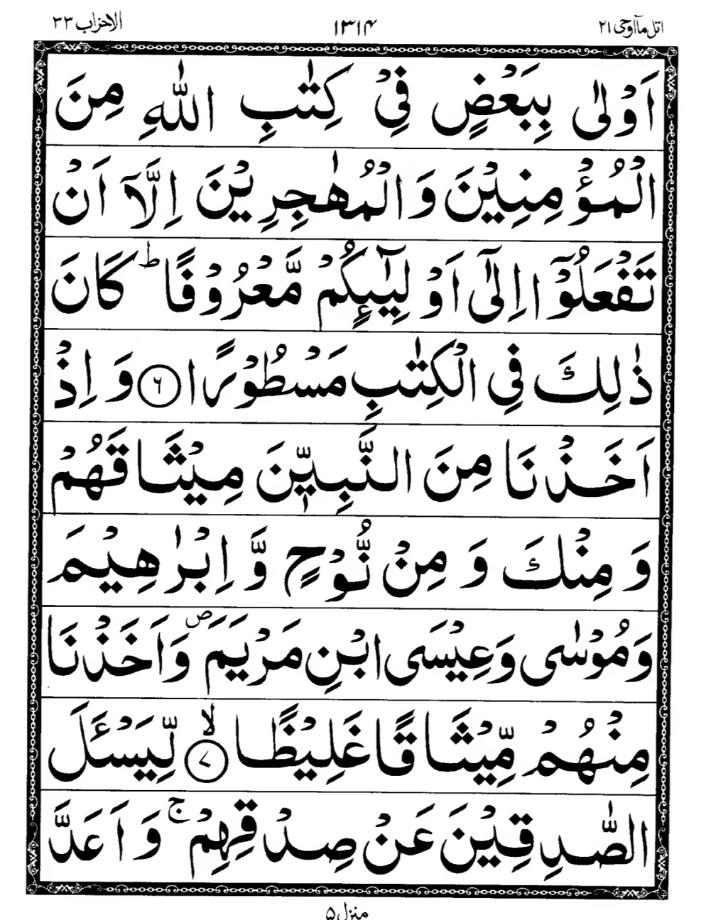 اتل مآاوحی ۲۱ ۱۳۱۴ الاحزاب ۳۳
اَوْلٰى بِبَعْضٍ فِيْ كِتٰبِ اللّٰهِ مِنَ
الْمُؤْمِنِيْنَ وَالْمُهٰجِرِيْنَ اِلَّاۤ اَنْ
تَفْعَلُوْۤا اِلٰۤى اَوْلِيٰٓئِكُمْ مَّعْرُوْفًا ؕ كَانَ
ذٰلِكَ فِي الْكِتٰبِ مَسْطُوْرًا ۶ وَ اِذْ
اَخَذْنَا مِنَ النَّبِيّٖنَ مِيْثَاقَهُمْ
وَ مِنْكَ وَ مِنْ نُّوْحٍ وَّ اِبْرٰهِيْمَ
وَمُوْسٰى وَعِيْسَى ابْنِ مَرْيَمَ ۪ وَاَخَذْنَا
مِنْهُمْ مِّيْثَاقًا غَلِيْظًا ۙ ۷ لِّيَسْـَٔلَ
الصّٰدِقِيْنَ عَنْ صِدْقِهِمْ ۚ وَ اَعَدَّ
منزل ۵